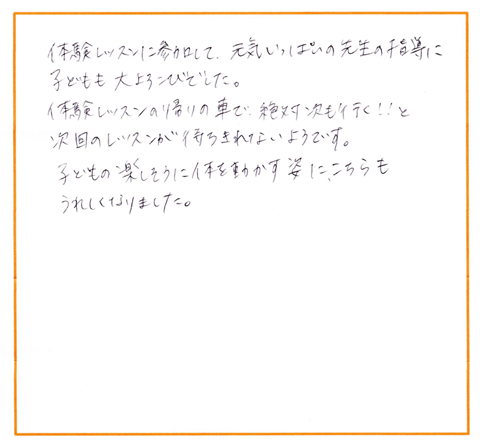 体験レッスンに参加して、元気いっぱいの先生の指導に
子どもも大よろこびでした。
体験レッスンの帰りの車で、絶対次も行く!!と
次回のレッスンが待ちきれないようです。
子どもの楽しそうに体を動かす姿に、こちらも
うれしくなりました。